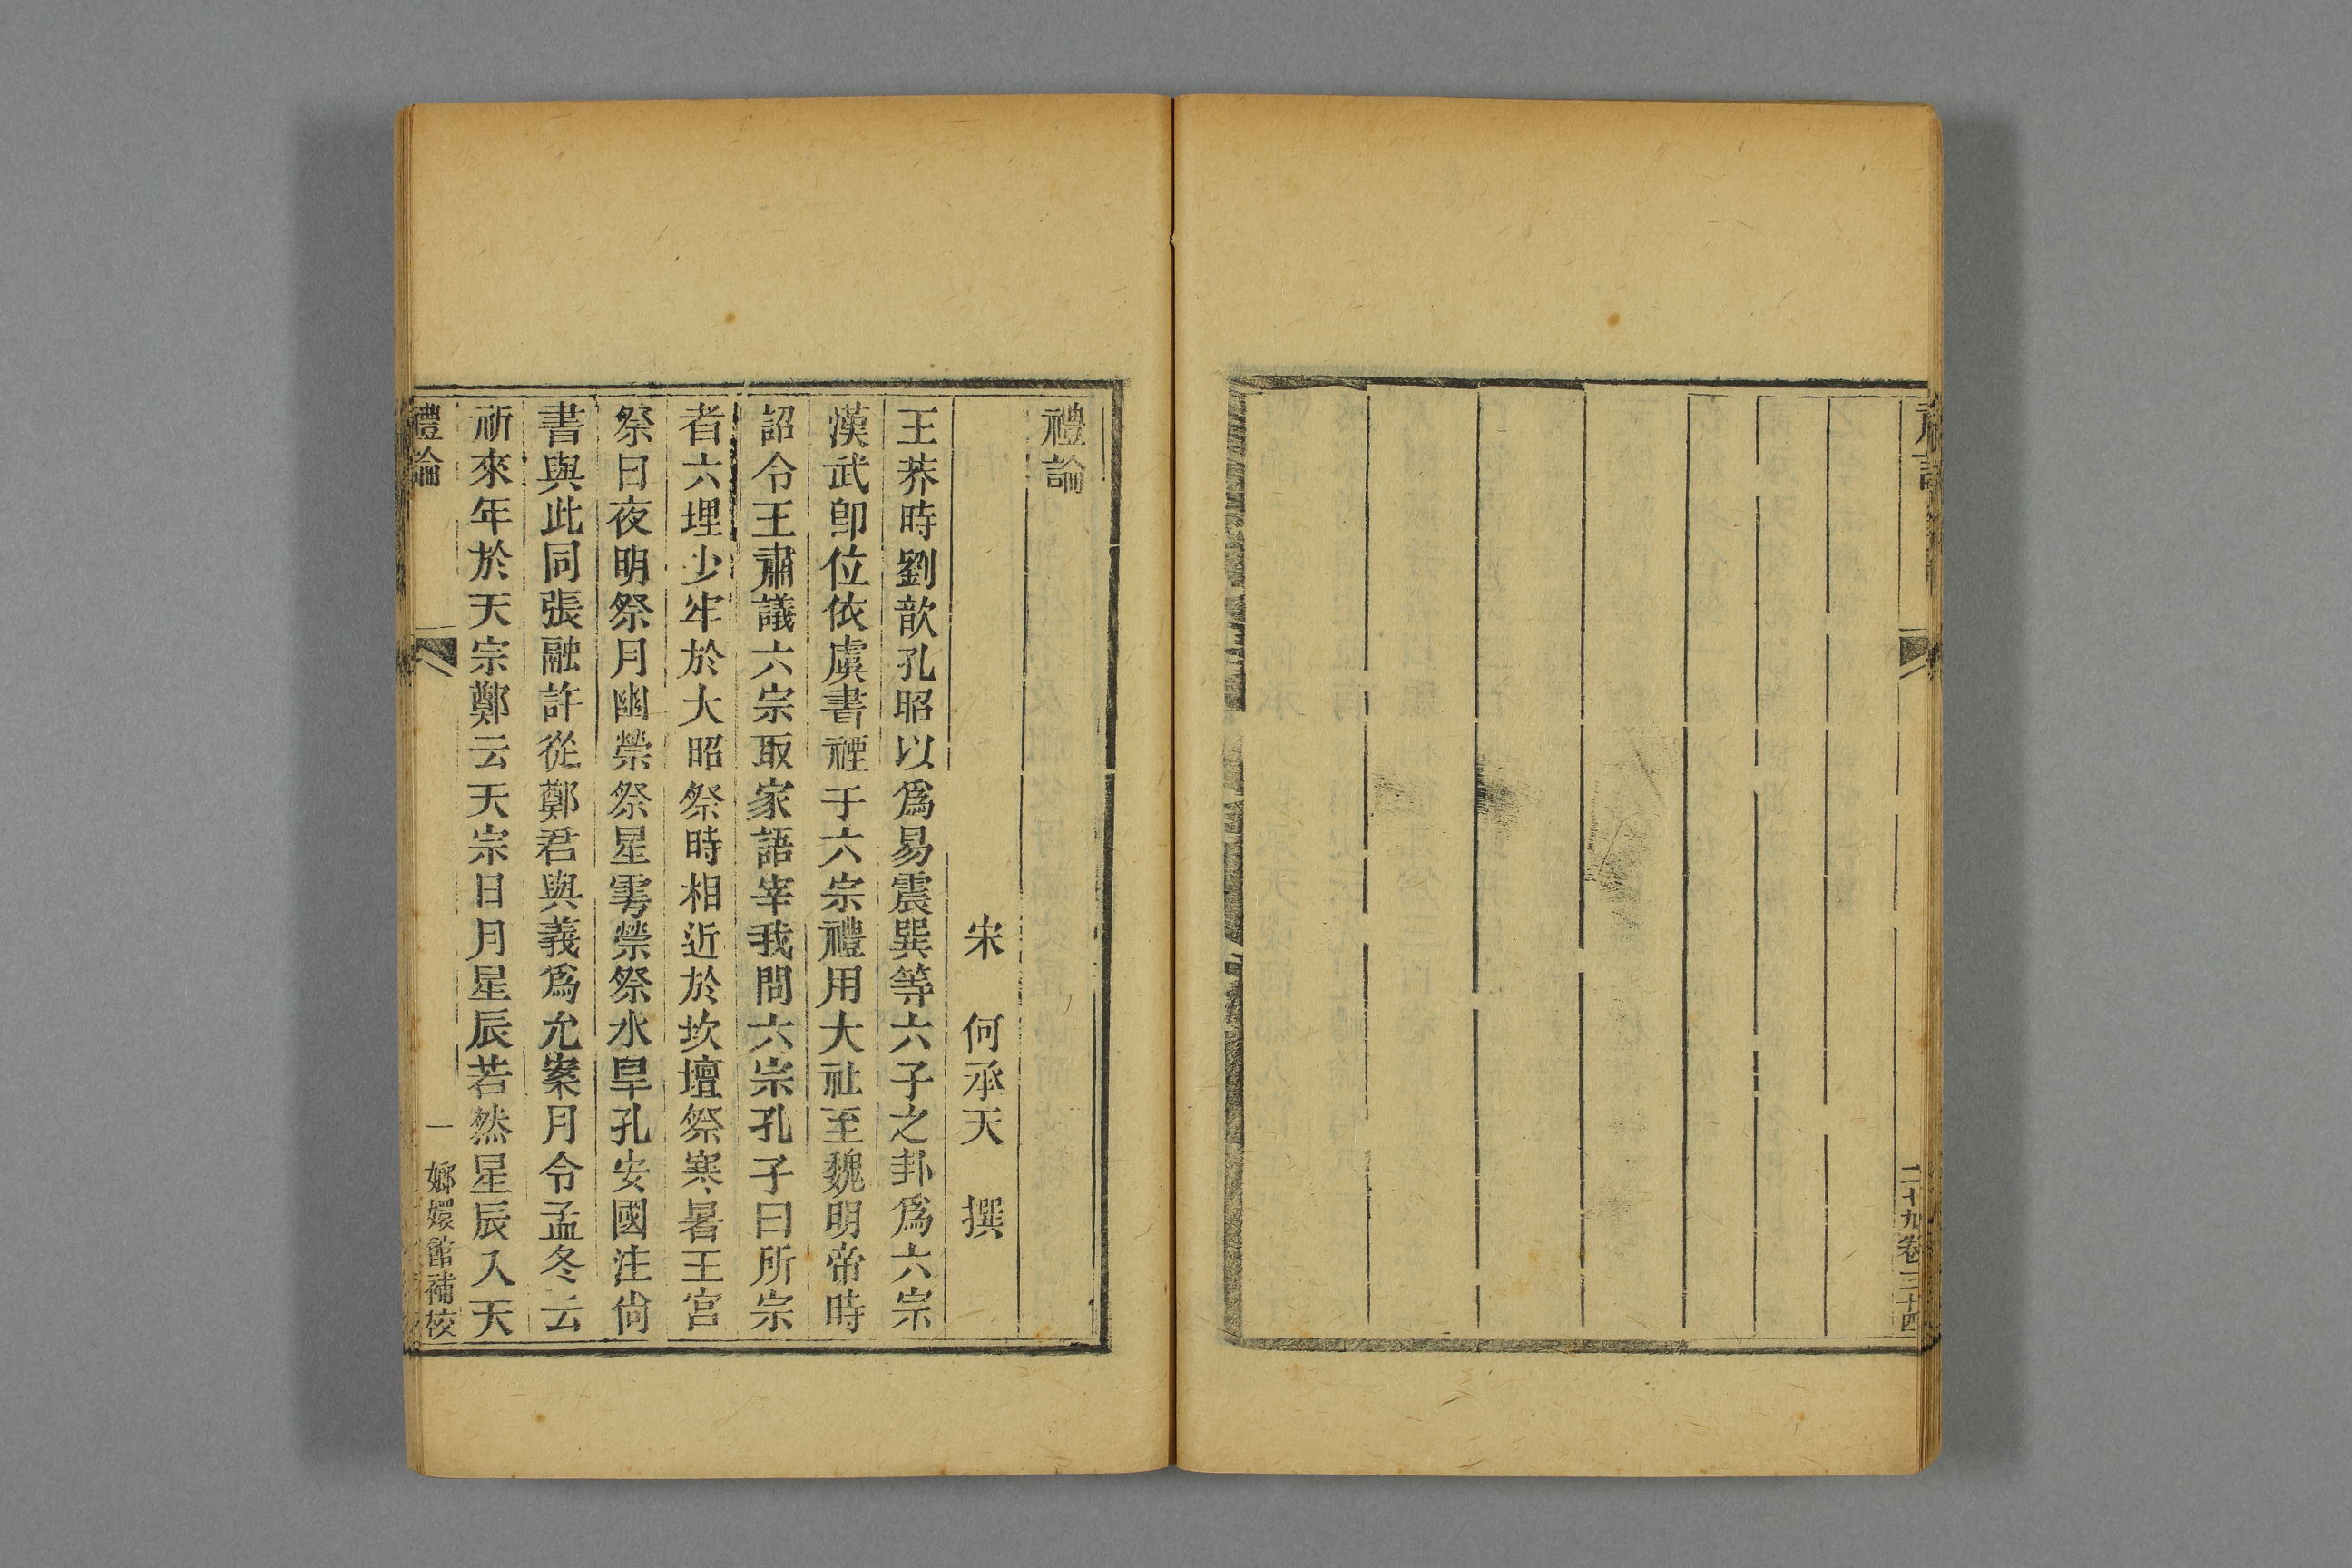 二十九卷三十四
禮論
宋 何承天 撰
王莽時劉歆孔昭以爲易震巽等六子之卦爲六宗
漢武卽位依虞書禋于六宗禮用大祉至魏明帝時
詔令王肅議六宗取家語宰我問六宗孔子曰所宗
者六埋少牢於大昭祭時相近於坎壇祭寒暑王宮
祭日夜明祭月幽禜祭星雩禜祭水旱孔安國注尙
書與此同張融許從鄭君與義爲允案月令孟冬云
祈來年於天宗鄭云天宗日月星辰若然星辰入天
禮論
一
嫏嬛館補校